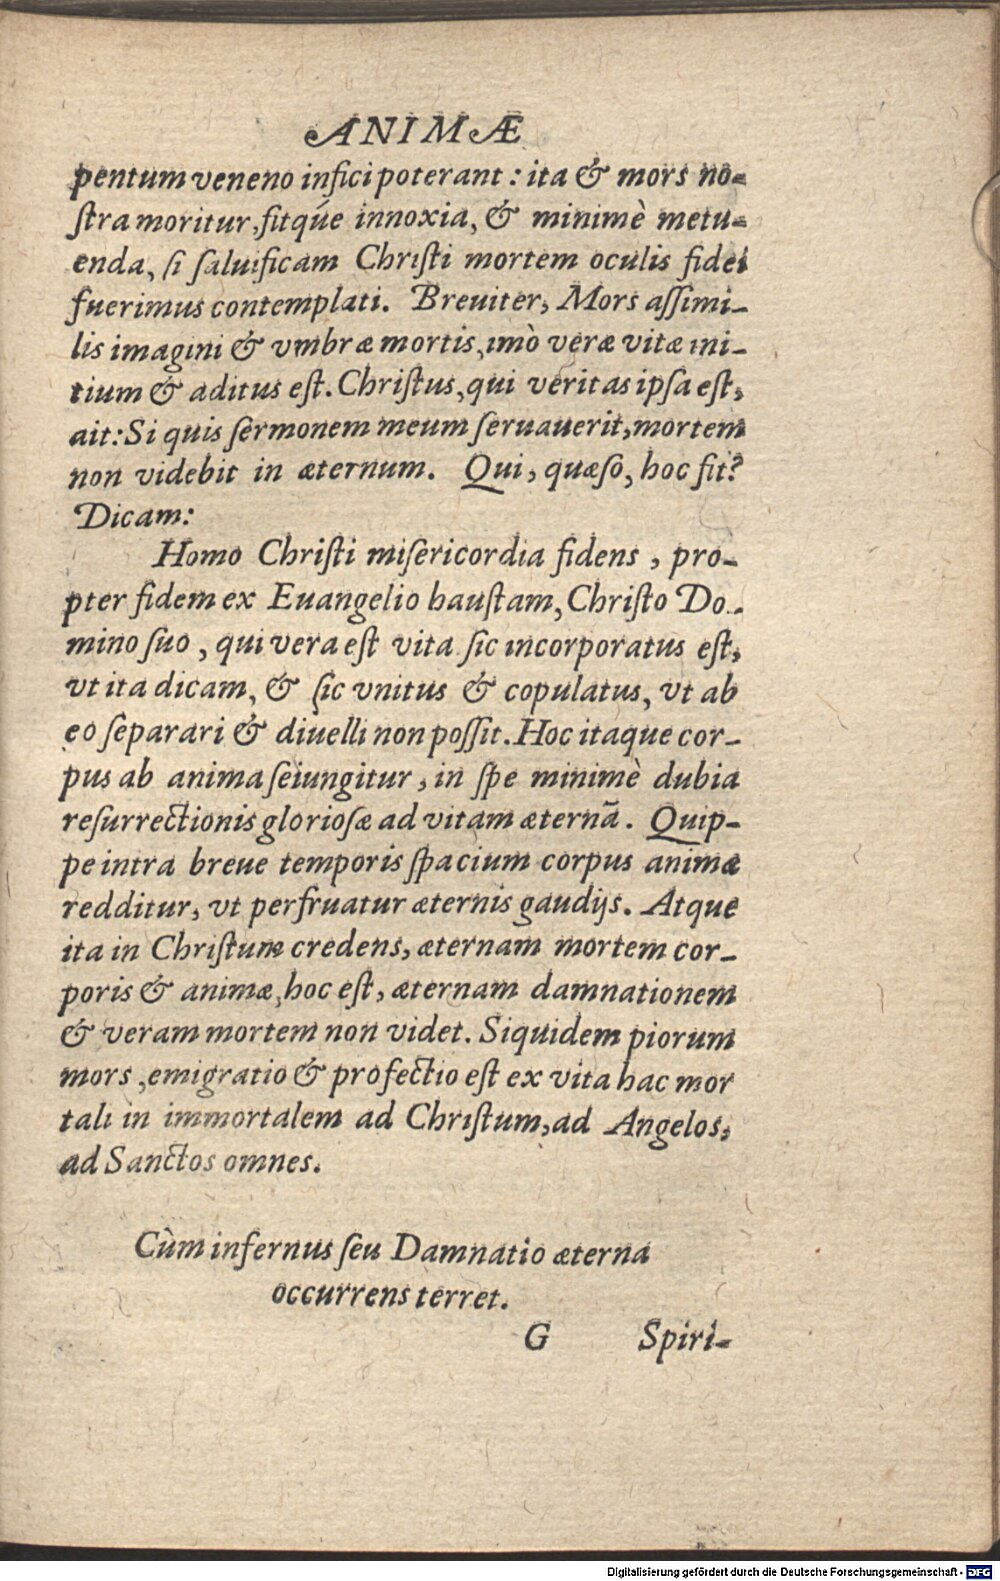 ANIMÆ
pentum veneno infici poterant: ita & mors no-
ſtra moritur, fitq́ue innoxia, & minimè metu-
enda, ſi ſaluificam Chriſti mortem oculis fidei
fuerimus contemplati. Breuiter, Mors aſſimi-
lis imagini & vmbræ mortis, imò veræ vitæ ini-
tium & aditus eſt. Chriſtus, qui veritas ipſa eſt,
ait: Si quis ſermonem meum ſeruauerit, mortem
non videbit in æternum. Qui, quæſo, hoc fit?
Dicam:
Homo Chriſti miſericordia fidens, pro-
pter fidem ex Euangelio hauſtam, Chriſto Do-
mino ſuo, qui vera eſt vita ſic incorporatus eſt,
vt ita dicam, & ſic vnitus & copulatus, vt ab
eo ſeparari & diuelli non poſſit. Hoc itaque cor-
pus ab anima ſeiungitur, in ſpe minimè dubia
reſurrectionis glorioſæ ad vitam æternã. Quip-
pe intra breue temporis ſpacium corpus animæ
redditur, vt perfruatur æternis gaudijs. Atque
ita in Chriſtum credens, æternam mortem cor-
poris & animæ, hoc eſt, æternam damnationem
& veram mortem non videt. Siquidem piorum
mors, emigratio & profectio eſt ex vita hac mor
tali in immortalem ad Chriſtum, ad Angelos,
ad Sanctos omnes.
Cùm infernus ſeu Damnatio æterna
occurrens terret.
G Spiri-
Digitalisierung gefördert durch die Deutsche Forschungsgemeinschaft - DFG